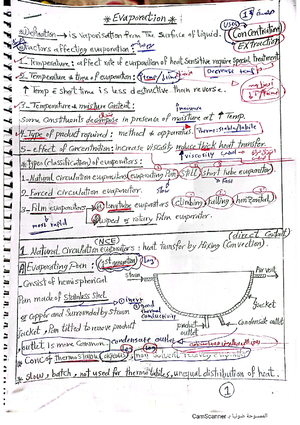 * Evaporation *
Uses
Concentration
EXTRACTION
Definition → is vaporisation from The Surface of Liquid.
Factors affecting evaporation:
1- Temperature: affect rate of evaporation of heat Sensitive require Special Treatment
2- Temperature & time of evaporation: (Temp/time)
Decrease temp
↑ Temp & short time is less destructive than reverse.
3- Temperature & moisture Content:
Some Constituents decompose in presence of moisture at ↑ Temp.
4- Type of product required: method & apparatus
Thermostable/labile
5- effect of Concentration: increase viscosity reduce thick heat transfer.
↑ viscosity
* types (classification) of evaporators:-
1- Natural circulation evaporators (evaporating Pan) (Still) (short tube evaporator)
2- Forced circulation evaporators.
3- Film evaporators (long tube evaporators (climbing) (falling) (horizontal)
most rapid
wiped or rotary Film evaporator.
(NCE)
(direct Contact)
1- Natural circulation evaporators: heat transfer by Mixing (Convection)
A Evaporating Pan:
Consist of hemispherical
Pan made of Stainless Steel
or Copper and Surrounded by Steam
Jacket, Pan tilted to remove product
outlet is more Common
Steam
Air vent
Jacket
thermal conductivity
product outlet
Condensate outlet
condensate outlet
* Conc of Thermostable (aqueous), non Solvent recovery evaporator
* Slow, batch, not used for thermolabiles, unequal distribution of heat.
1
CamScanner الممسوحة ضوئيا بـ